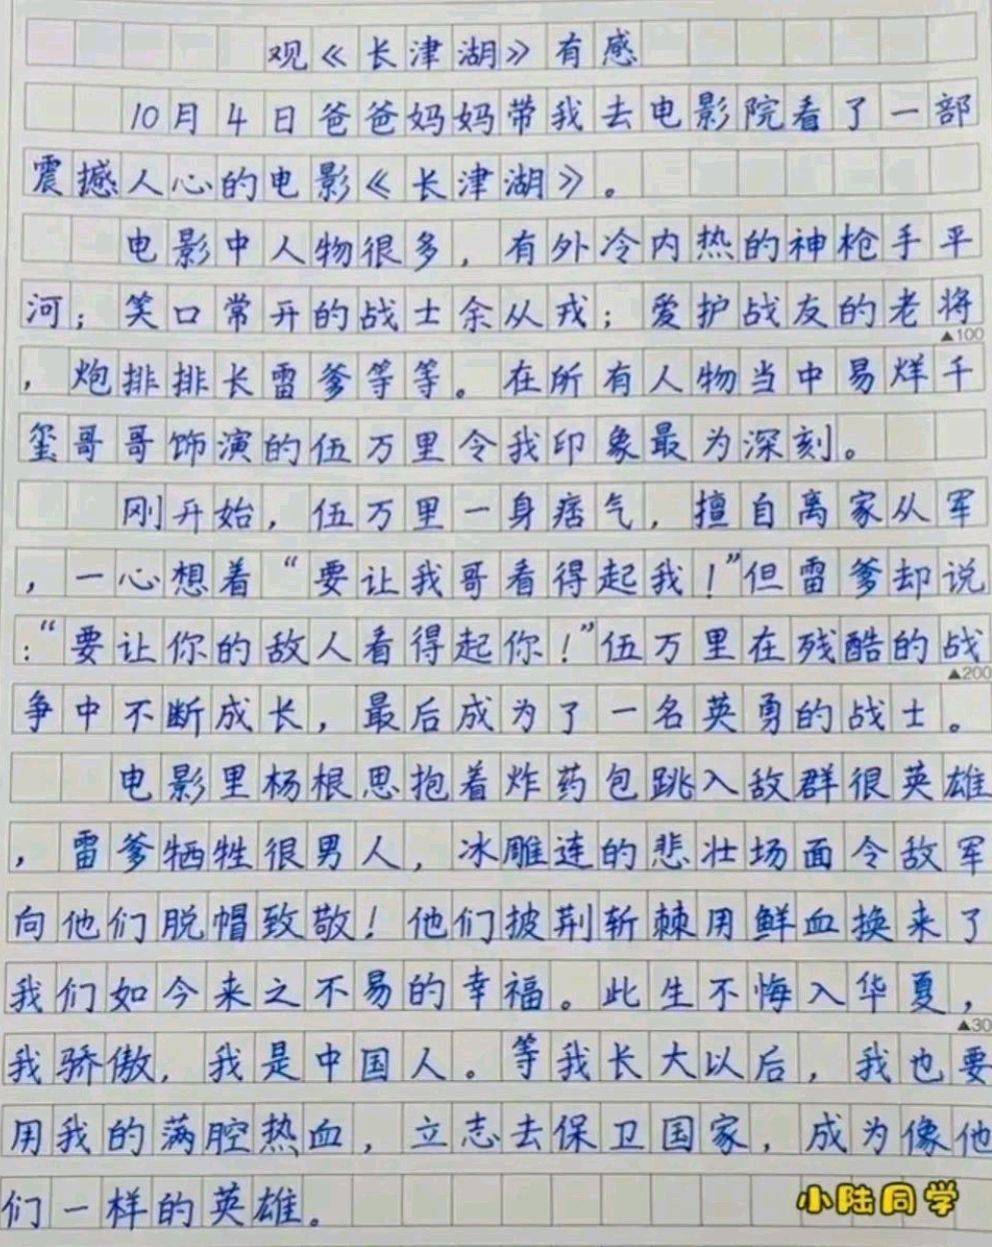 观《长津湖》有感
10月4日爸爸妈妈带我去电影院看了一部
震撼人心的电影《长津湖》。
电影中人物很多，有外冷内热的神枪手平
河；笑口常开的战士余从戎；爱护战友的老将
▲100
，炮排排长雷爹等等。在所有人物当中易烊千
玺哥哥饰演的伍万里令我印象最为深刻。
刚开始，伍万里一身痞气，擅自离家从军
，一心想着“要让我哥看得起我！”但雷爹却说
：“要让你的敌人看得起你！”伍万里在残酷的战
▲200
争中不断成长，最后成为了一名英勇的战士。
电影里杨根思抱着炸药包跳入敌群很英雄
，雷爹牺牲很男人，冰雕连的悲壮场面令敌军
向他们脱帽致敬！他们披荆斩棘用鲜血换来了
我们如今来之不易的幸福。此生不悔入华夏，
▲30
我骄傲，我是中国人。等我长大以后，我也要
用我的满腔热血，立志去保卫国家，成为像他
们一样的英雄。
小陆同学